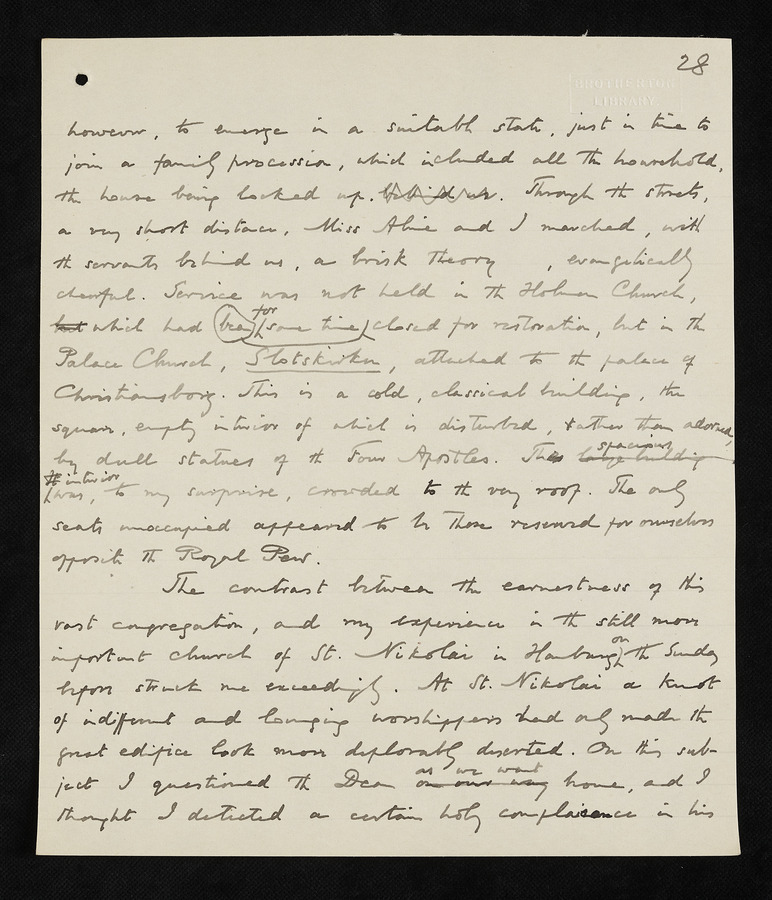 28
BROTHERTON
LIBRARY
however, to emerge in a suitable state, just in time to
join a family procession, which included all the household,
the house being locked up. behind us. Through the streets,
a very short distance, Miss Aline and I marched, with
the servants behind us, a brisk theory , evangelically
cheerful. Service was not held in the Holmen Church,
but which had been for some time closed for restoration, but in the
Palace Church, Slotskirken, attached to the palace of
Christiansborg. This is a cold, classical building, the
square, empty interior of which is disturbed, rather than adorned,
by dull statues of the Four Apostles. This large building spacious
The interior was, to my surprise, crowded to the very roof. The only
seats unoccupied appeared to be those reserved for ourselves
opposite the Royal Pew.
The contrast between the earnestness of this
vast congregation, and my experience in the still more
important church of St. Nikolai in Hamburg on the Sunday
before struck me exceedingly. At St. Nikolai a knot
of indifferent and lounging worshippers had only made the
great edifice look more deplorably deserted. On this sub-
ject I questioned the Dean on our way as we went home, and I
thought I detected a certain holy complaisance in his